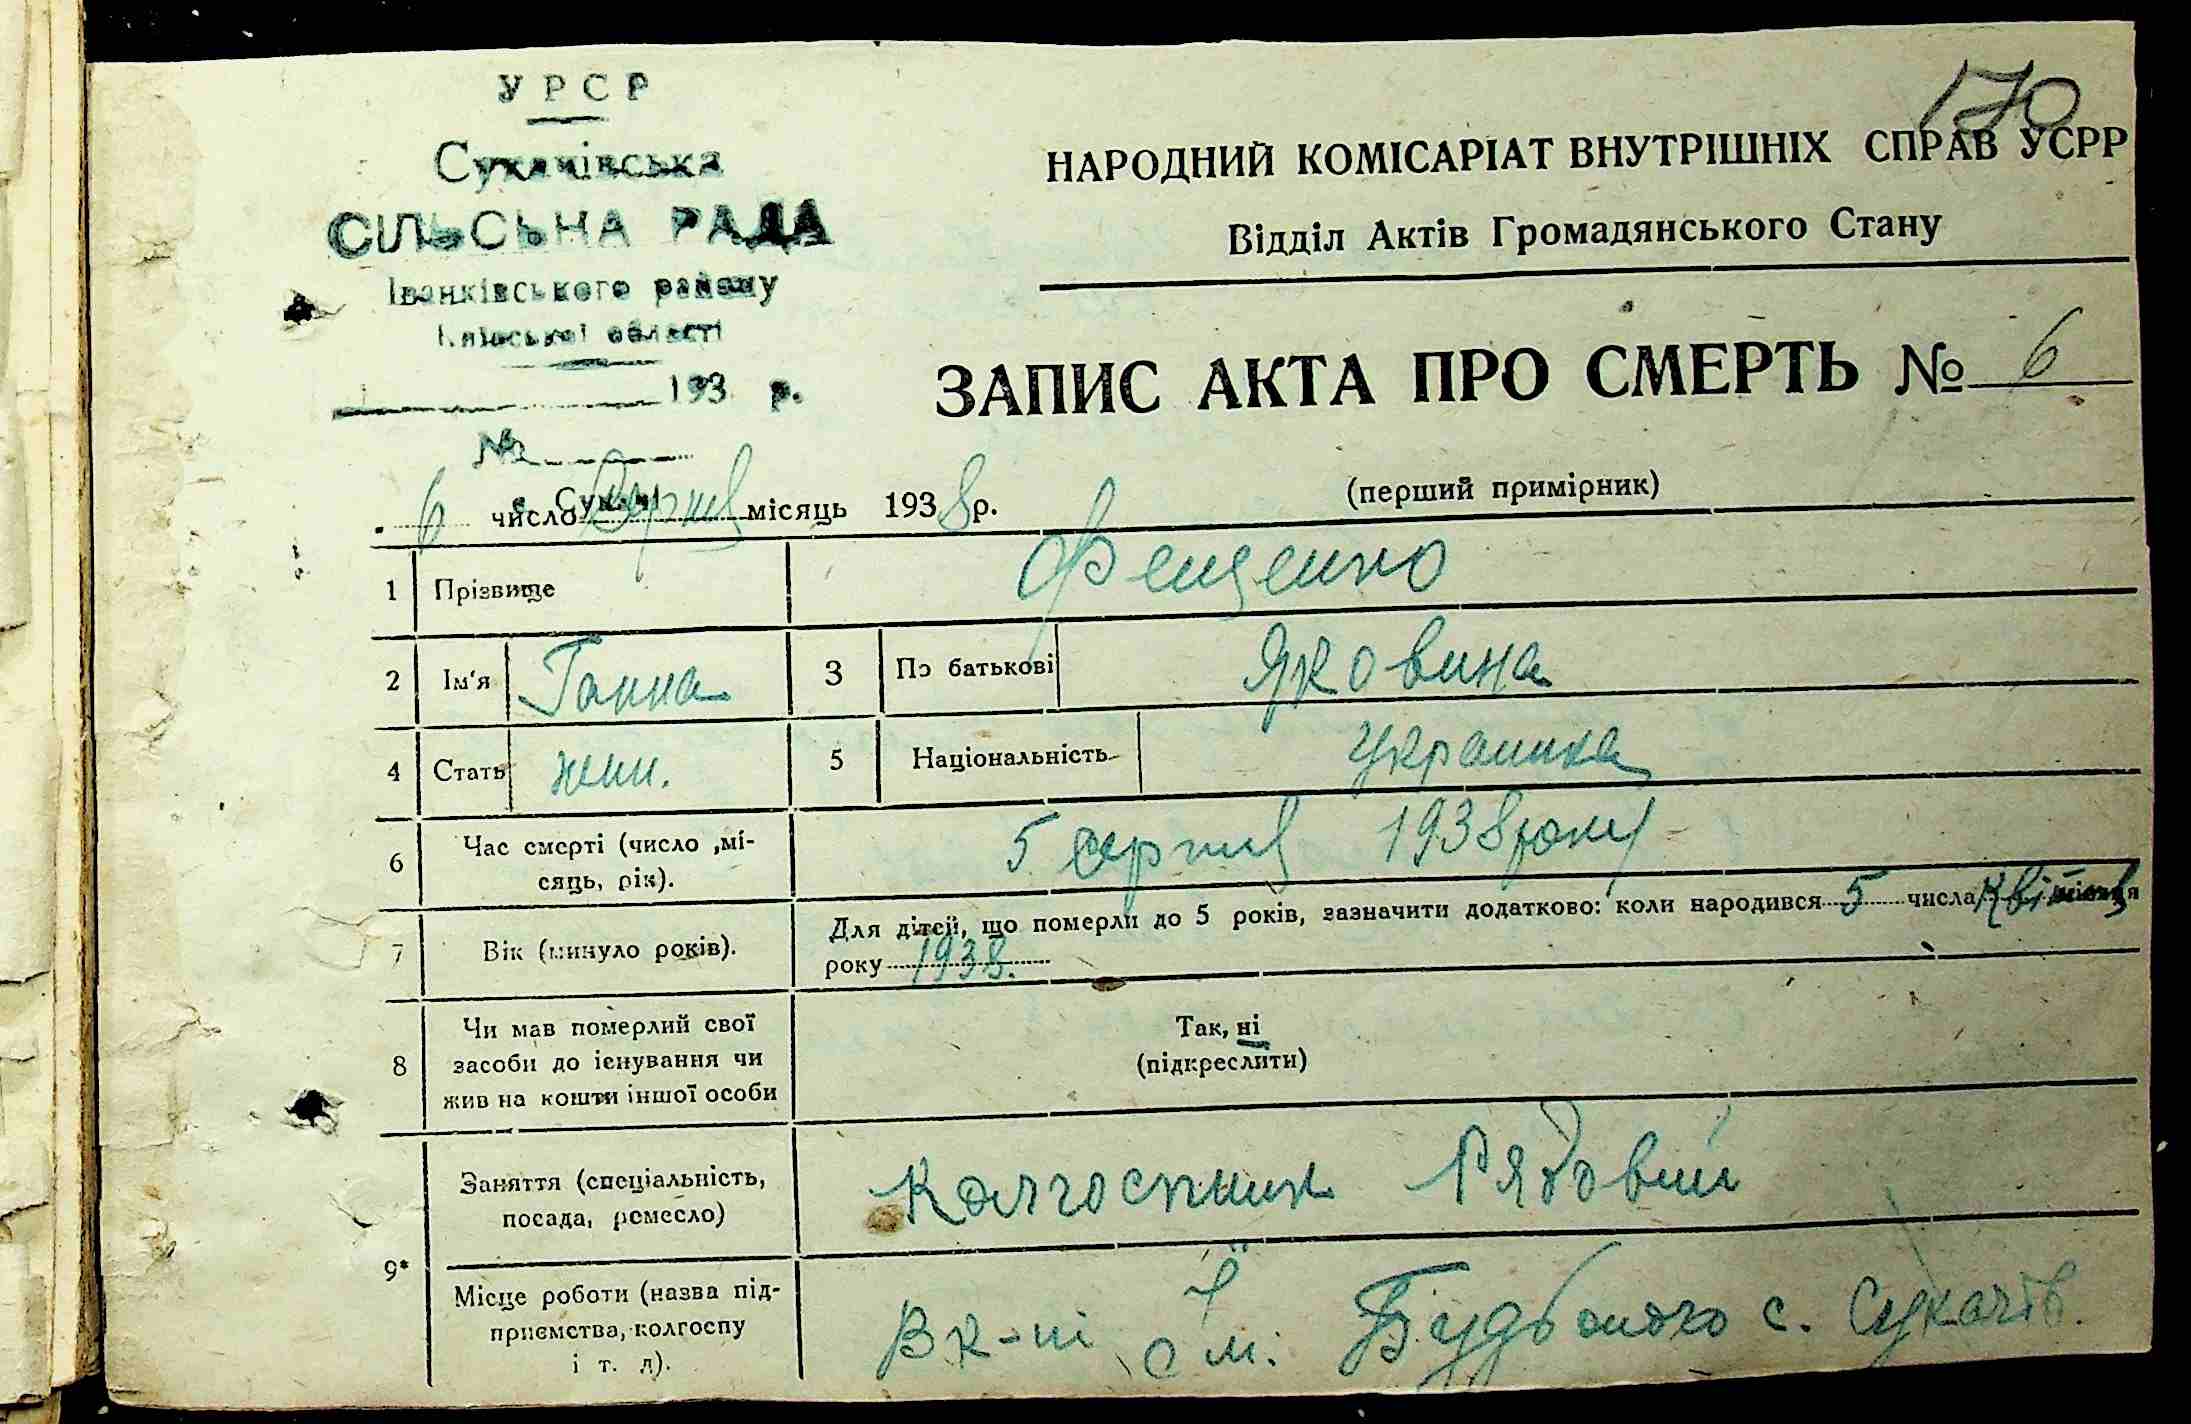 170
УРСР
Сукачівська
СІЛЬСЬКА РАДА
Іванківського району
Київської області
193 р.
№
с. Сукачі
НАРОДНИЙ КОМІСАРІАТ ВНУТРІШНІХ СПРАВ УСРР
Відділ Актів Громадянського Стану
ЗАПИС АКТА ПРО СМЕРТЬ № 6
(перший примірник)
6 число Серпня місяць 1938 р.
1 Прізвище Фещенко
2 Ім'я Ганна 3 По батькові Яковина
4 Стать жін. 5 Національність украинка
6 Час смерті (число ,мі-
сяць, рік). 5 серпня 1938 року
7 Вік (минуло років). Для дітей, що померли до 5 років, зазначити додатково: коли народився 5 числа Квітня місяця
року 1938.
8 Чи мав померлий свої
засоби до існування чи
жив на кошти іншої особи
Так, ні
(підкреслити)
9*
Заняття (спеціальність,
посада, ремесло) Колгоспник Рядовий
Місце роботи (назва під-
приємства, колгоспу
і т. д). В к-пі ім. с. Сукачів.